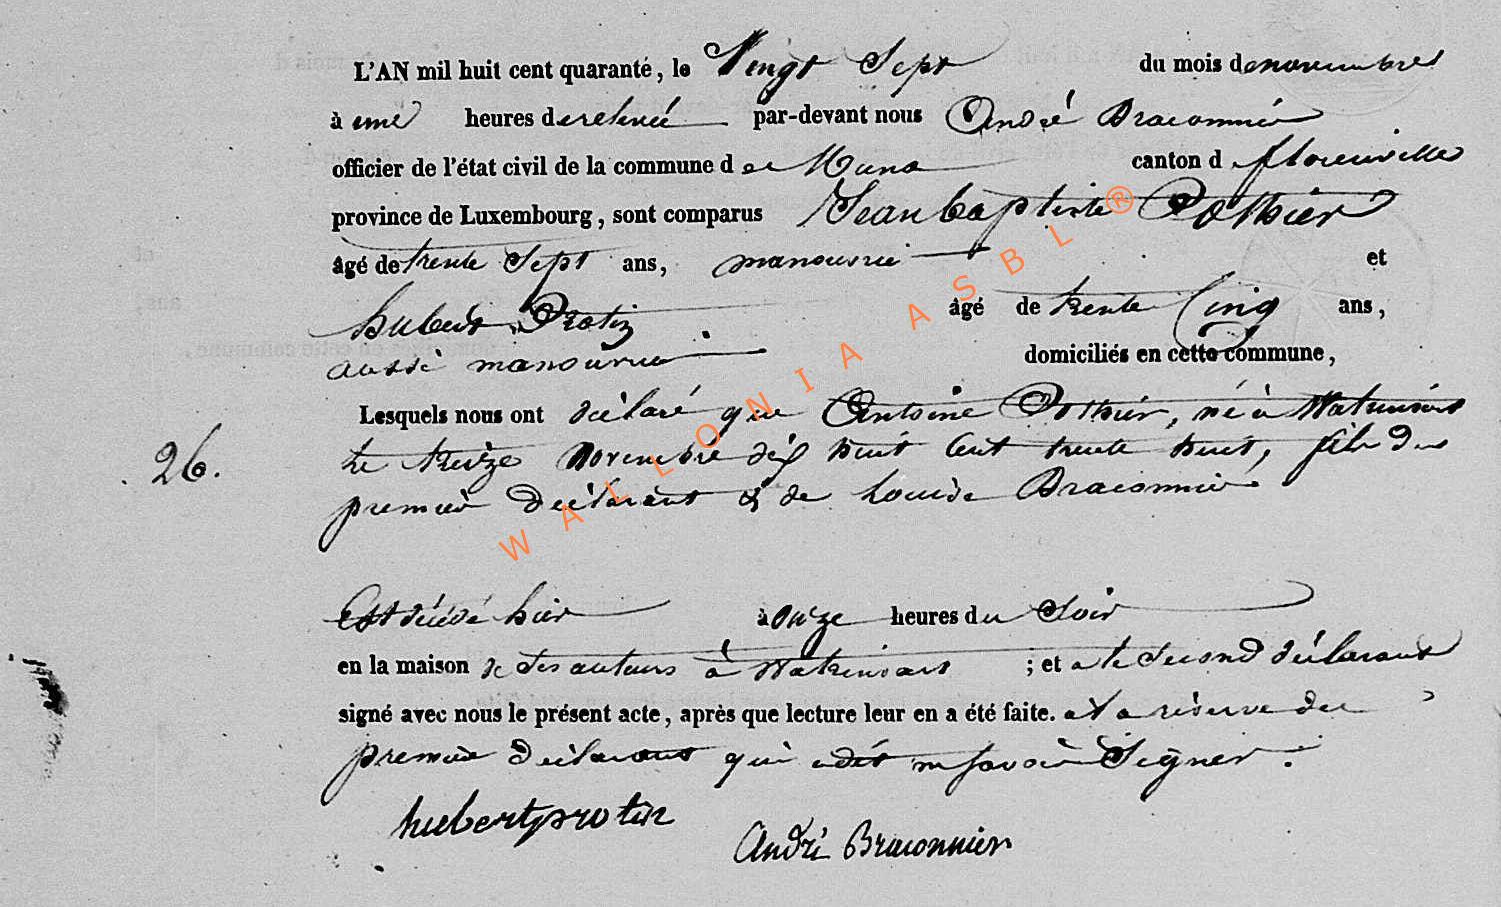 L'AN mil huit cent quarante, le Vingt Sept du mois de novembre
à une heures de relevée par-devant nous André Braconnier
officier de l'état civil de la commune d de Muno canton d de florenville
province de Luxembourg, sont comparus Jean baptiste Pothier
âgé de trente Sept ans, manouvrier et
hubert Protin âgé de trente Cinq ans,
aussi manouvrier domiciliés en cette commune,
Lesquels nous ont déclaré que Antoine Pothier, né à Watrinsart
26. le treize Novembre dix huit Cent trente huit, fils du
premier déclarant & de Louise Braconnier
Est décédé hier à onze heures du Soir
en la maison de ses auteurs à Watrinsart ; et a le second déclarant
signé avec nous le présent acte, après que lecture leur en a été faite. à la réserve du
premier déclarant qui a dit ne savoir Signer.
hubert protin
André Braconnier
WALLONIA ASBL ®